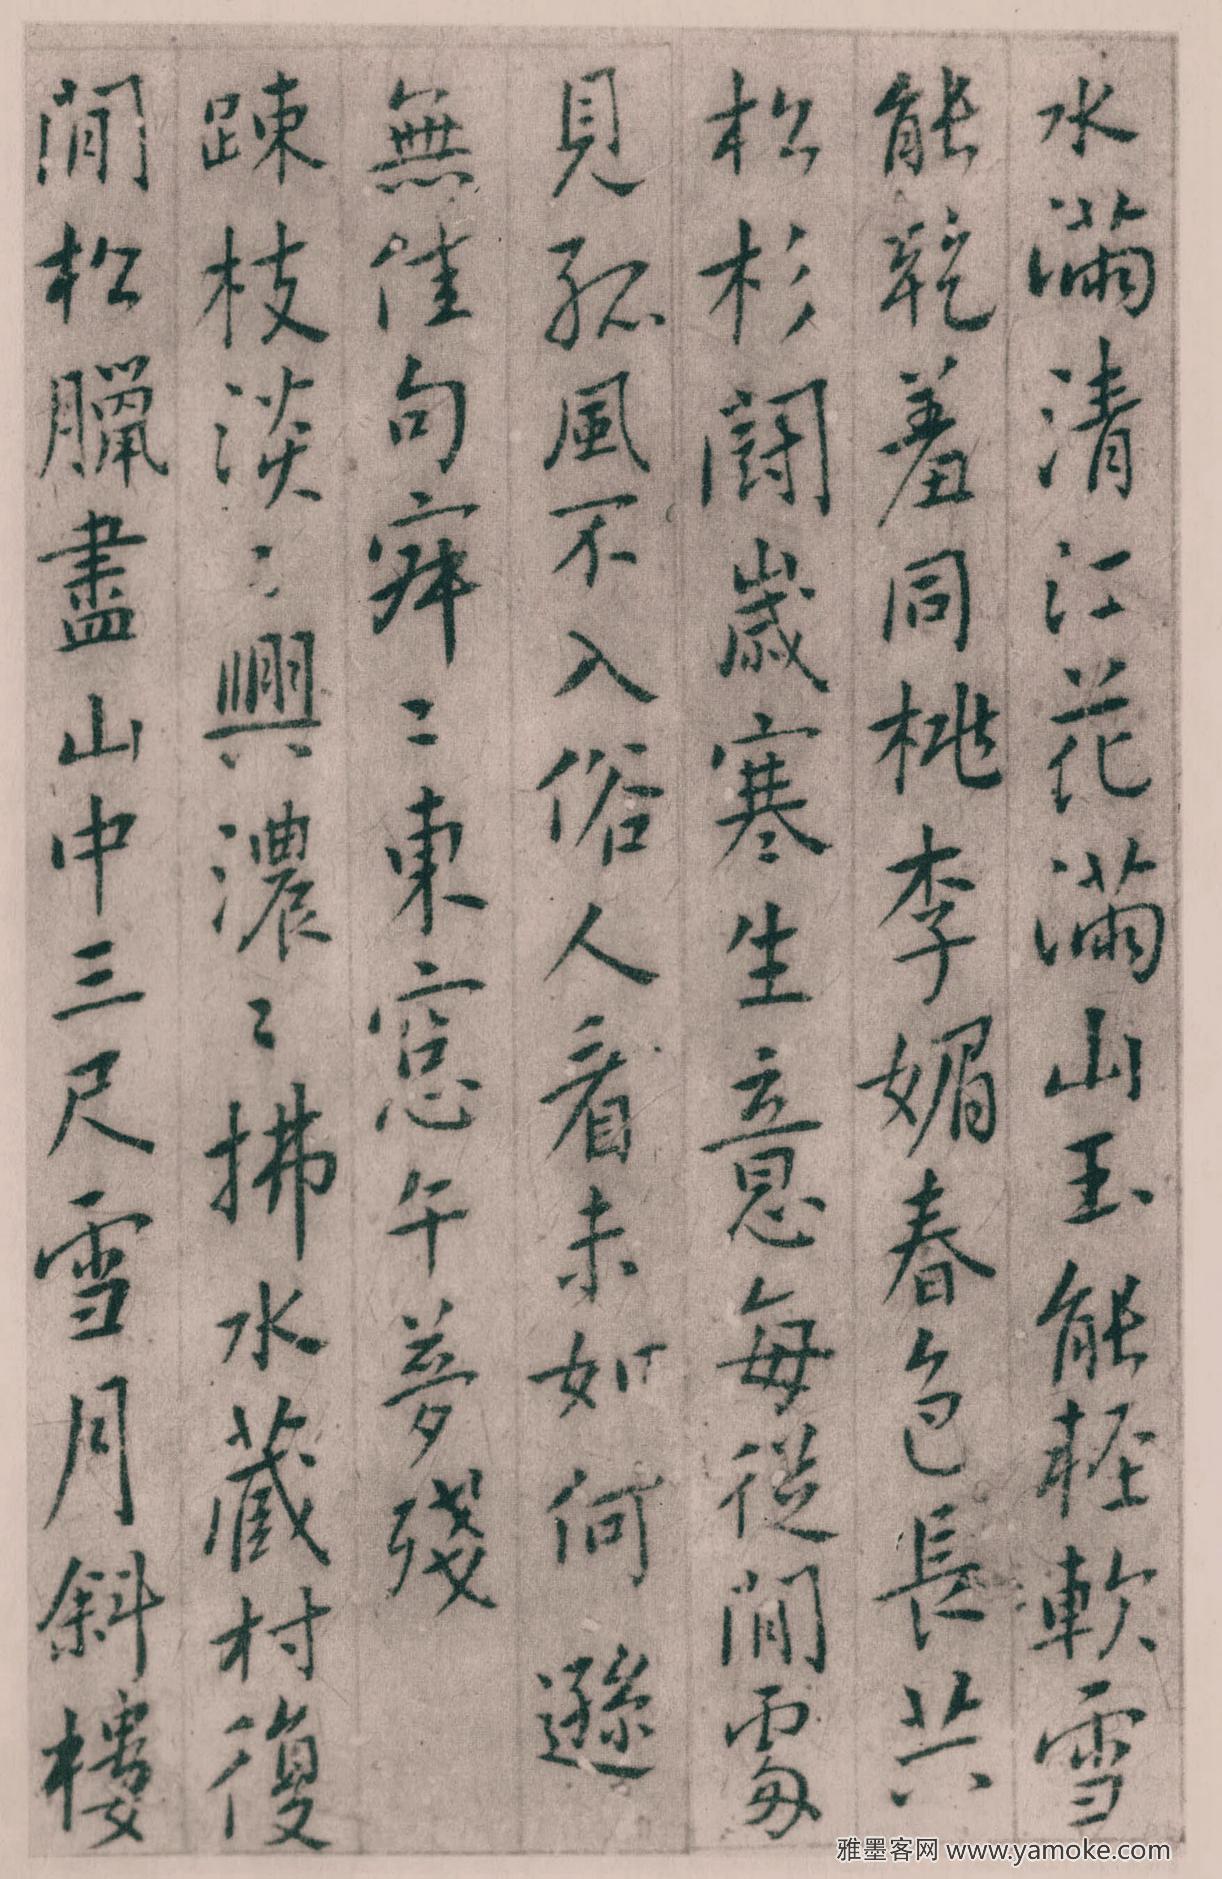 水滿清江花滿山玉能輕軟雪
能乾羞同桃李媚春色長共
松杉鬪歲寒生意每從閒處
見孤風不入俗人看未如何遜
無佳句寐〻東窓午夢殘
踈枝淡〻興濃〻拂水藏村復
間松臘盡山中三尺雪月斜樓
雅墨客网 www.yamoke.com